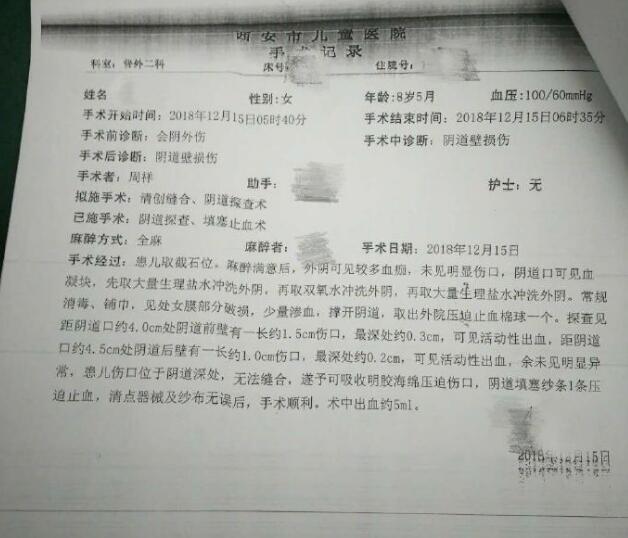 西安市儿童医院
手术记录
科室：骨外二科
床号:
住院号:
姓名
性别:女
年龄:8岁5月
血压:100/60mmHg
手术开始时间：2018年12月15日05时40分
手术结束时间：2018年12月15日06时35分
手术前诊断：会阴外伤
手术中诊断：阴道壁损伤
手术后诊断：阴道壁损伤
手术者：周祥
助手：
护士：无
拟施手术：清创缝合、阴道探查术
已施手术：阴道探查、填塞止血术
麻醉方式：全麻
麻醉者：
手术日期：2018年12月15日
手术经过：患儿取截石位。麻醉满意后，外阴可见较多血痂，未见明显伤口，阴道口可见血
凝块，先取大量生理盐水冲洗外阴，再取双氧水冲洗外阴，再取大量生理盐水冲洗外阴。常规
消毒、铺巾，见处女膜部分破损，少量渗血，撑开阴道，取出外院压迫止血棉球一个。探查见
距阴道口约4.0cm处阴道前壁有一长约1.5cm伤口，最深处约0.3cm，可见活动性出血，距阴道
口约4.5cm处阴道后壁有一长约1.0cm伤口，最深处约0.2cm，可见活动性出血，余未见明显异
常，患儿伤口位于阴道深处，无法缝合，遂予可吸收明胶海绵压迫伤口，阴道填塞纱条1条压
迫止血，清点器械及纱布无误后，手术顺利。术中出血约5ml。
2018年12月15日